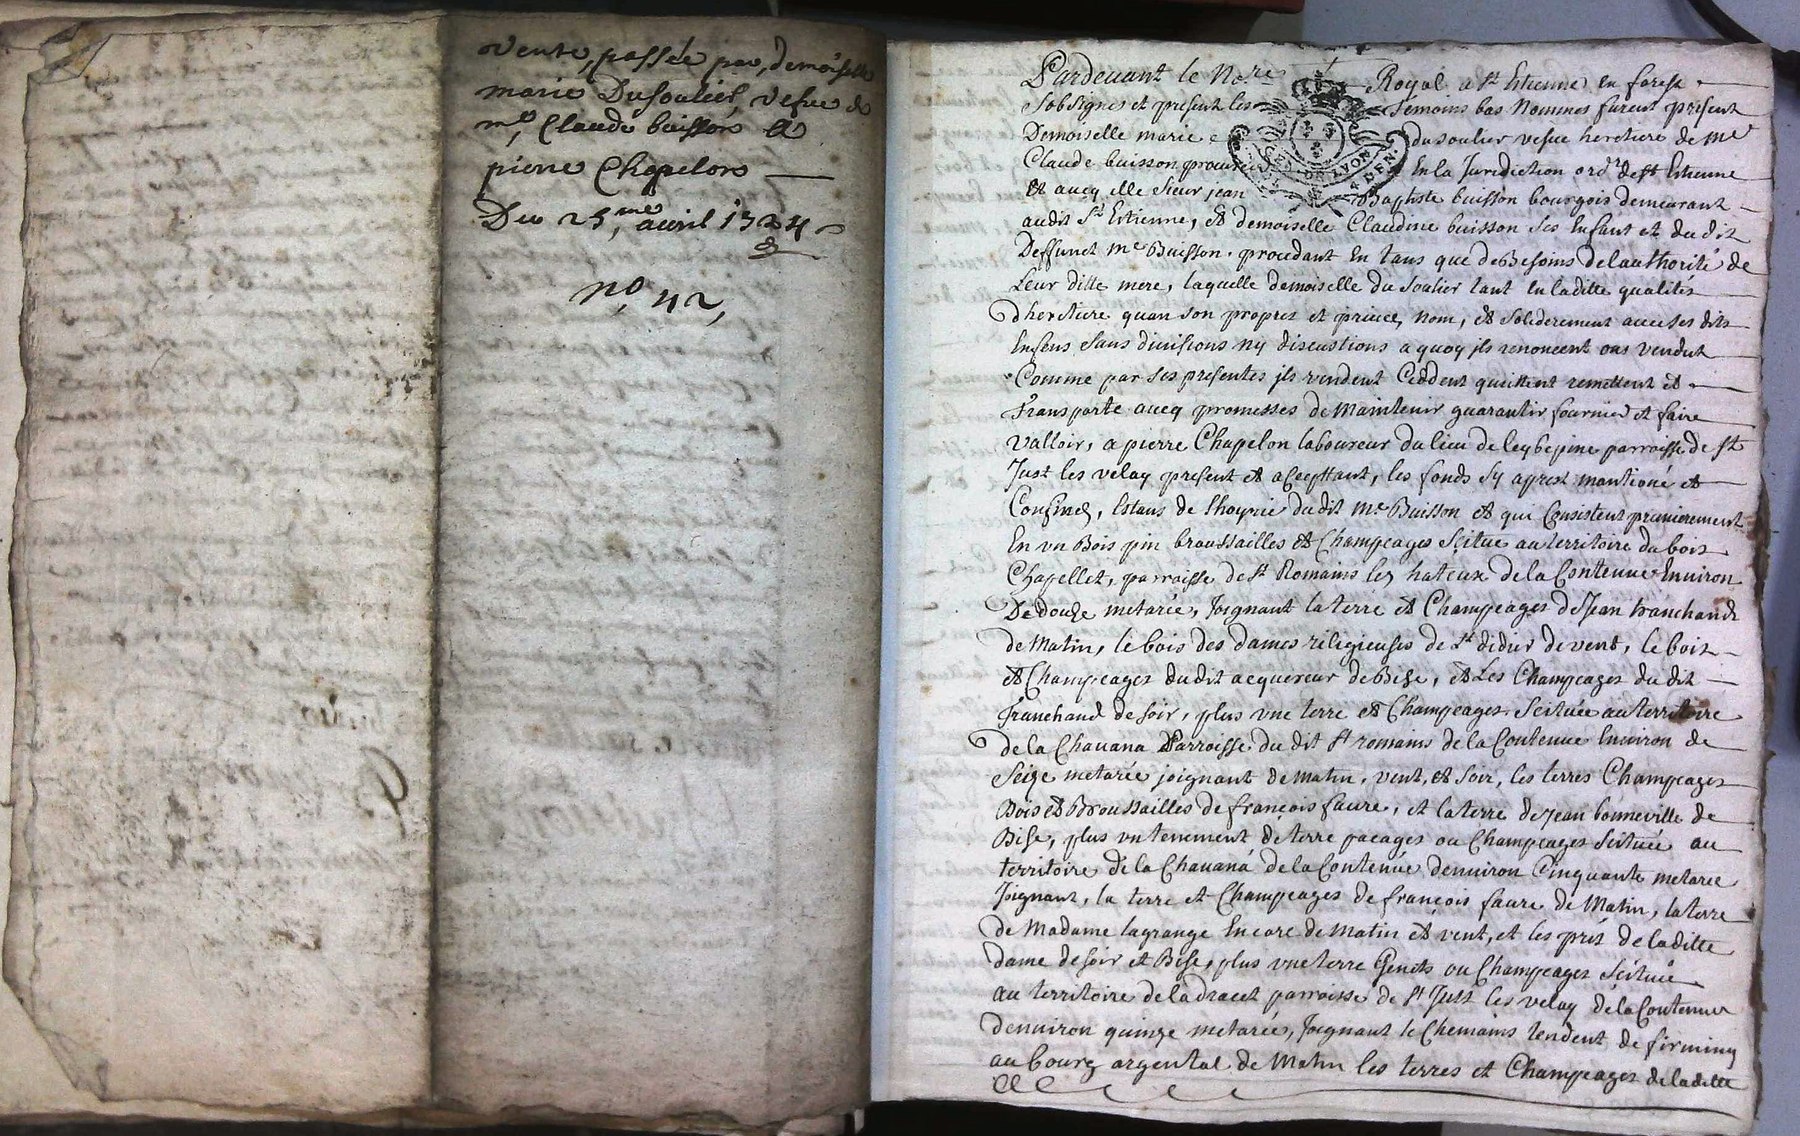 vente, passée par, demoiselle
marie Dusouliel, vefue de
me, Claude buisson &
pierre Chapelon
Du 25, me avril 1724
no, 42,
Pardeuant le Nore Royal a st Etienne en forest
Sobsignes et present les temoins bas Nommes furent present
Demoiselle marie dusoulier vefue heretiere de me
Claude buisson procureur En la Juridiction ordre de st Etienne
Et aueq elle sieur jean Baptiste buisson bourgois demeurant
audit st Ettienne, et demoiselle Claudine buisson ses Enfant et du dit
Deffunct me Buisson, proudant En tans que de Besoins de lauthorité de
Leur ditte mere, laquelle demoiselle du soulier tant en laditte qualites
dheretiere quan son propres et priuee, nom, et soliderement auec ses dits
Enfens sans diuisions ny discustions a quoy ils renoncent ons vendut
Comme par ses presentes ils vendent Ceddent quittent remettent et
Transporte aueq promesses de Maintenir guarantir fournir et faire
valloir, a pierre Chapelon laboureur du lieu de leybepine parroisse de st
Just les velay present et acepttant, les fonds sy aprest mantioné et
Confines, Estans de lhoyrie du dit me Buisson et qui Consistent premierement
En vn Bois pin broussailles et Champeages Scitue au territoire du bois
Chapellet, parroisse de st Romains les hateux de la Contenue Enuiron
De douze metarée, Joignant la terre et Champeages de Jean tranchand
de Matin, le bois des dames religieuses de st didier de vent, le bois
et Champeages du dit acquereur de Bize, et Les Champeages du dit
Tranchand de soir, plus vne terre et Champeages Scituée au territoire
de la Chauana Parroisse du dit st romains de la Contenue Enuiron de
Seize metarée joignant de matin, vent, et soir, les terres Champeages
Bois et Broussailles de françois faure, et la terre de jean bonneville de
Bise, plus vn tenement de terre pacages ou Champeages Scituée au
territoire de la Chauana de la Contenue denuiron Cinquante metaree
Joignant, la terre et Champeages de francois faure de Matin, la terre
de Madame lagrange Encore de Matin et vent, et les pres de laditte
dame de soir et Bise, plus vne terre Genets ou Champeages Scitué
au territoire de la dracet parroisse de st Just les velay de la Contenue
denuiron quinze metarée, Joignant le Chemains tendent de firminy
au bourg argental de Matin les terres et Champeages de laditte